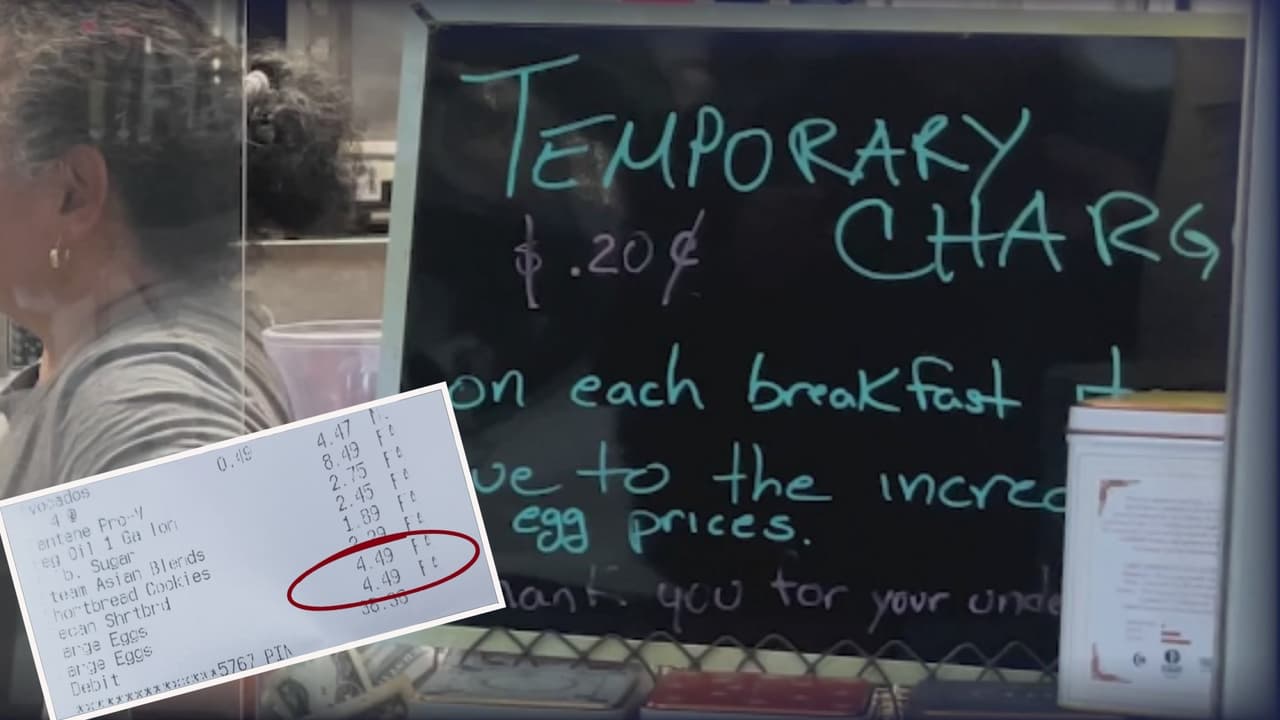 TEMPORARY
CHARG
$.20¢
on each breakfast
ue to the increa
egg prices.
hank you for your unde
vocados
0.49
4 @
4.47
entene Pro-V
8.49
eg Oil 1 Gallon
2.75
b. Sugar
2.45
team Asian Blends
1.89
hortbread Cookies
ecan Shrtbrd
4.49
arge Eggs
4.49
arge Eggs
Debit
xxxxxxxxxxxx5767 PIN